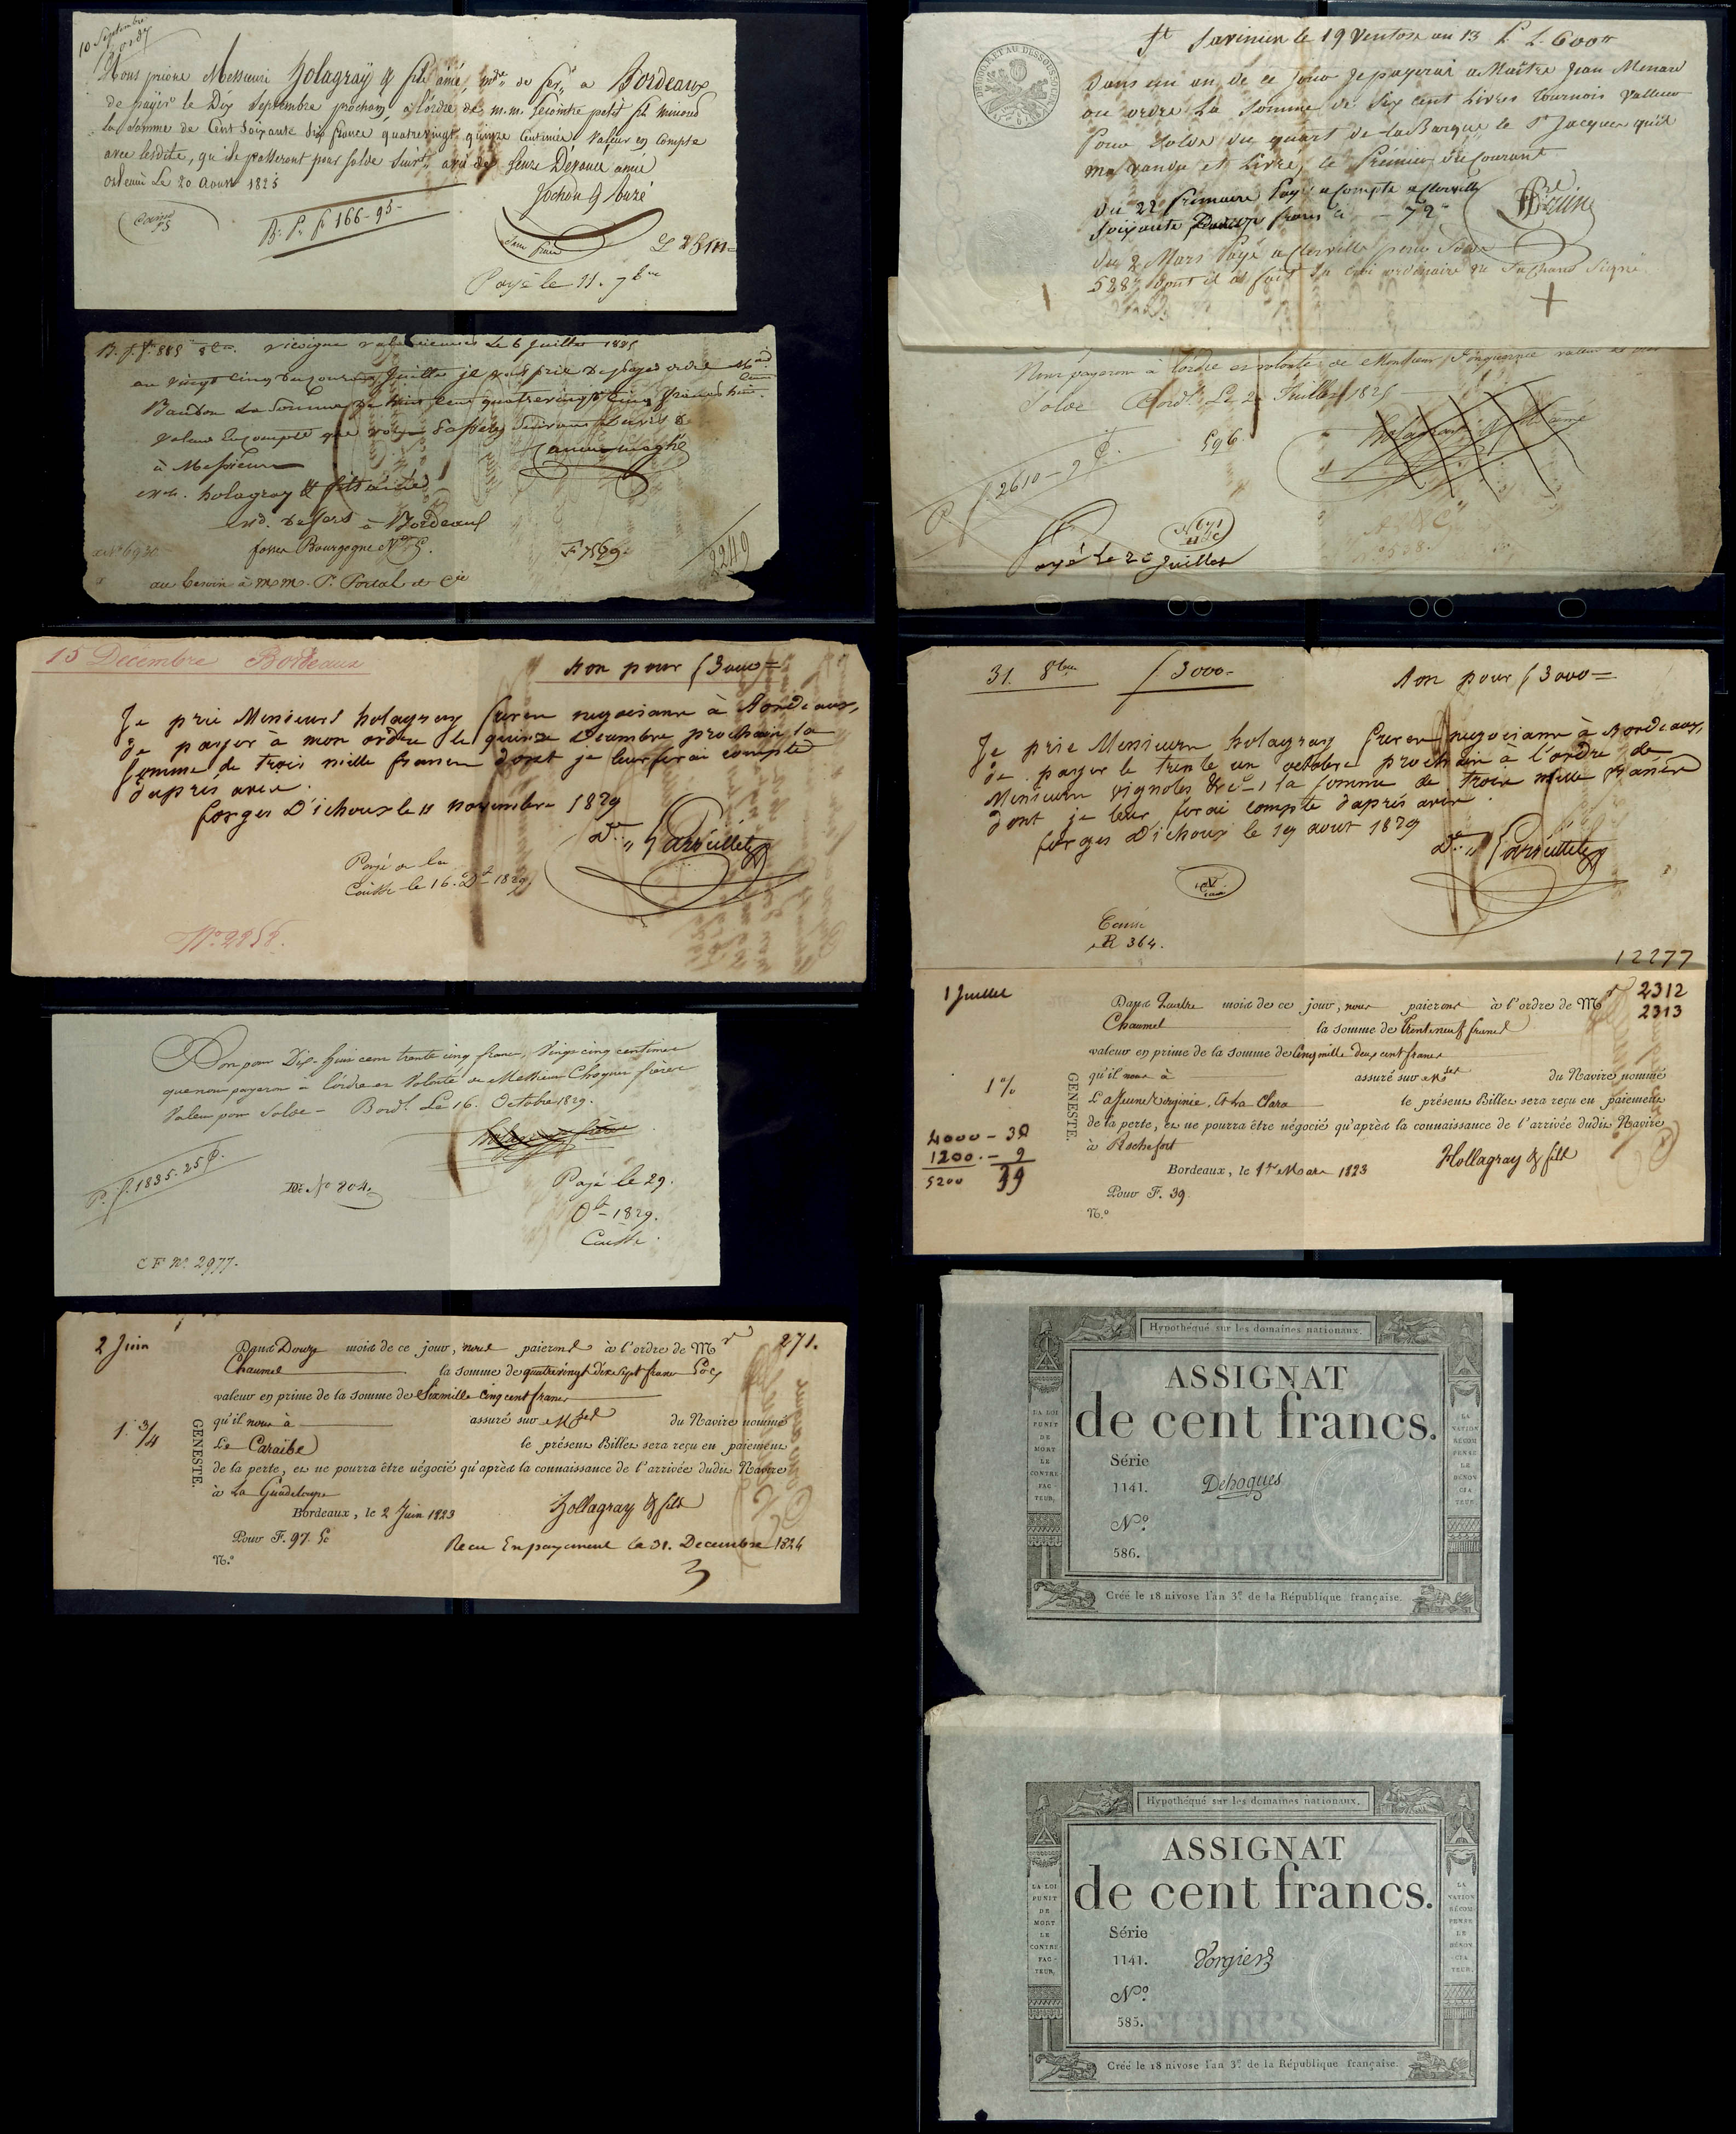 10 Septembre
Nous prions Messieurs Holagray & fils ainé, mds de fers a Bordeaux
de payer le Dix Septembre prochain, a l'ordre de m.m. Lecointre petit fils minoud
la Somme de Cent Soixante Six francs quatrevingt quinze Centimes Valeur en Compte
avec lesdits, qu'ils passeront pour solde suivt. avis de Leurs Dévoués amis
Orleans Le 20 Aoust 1825
B. P. f 166-95-
Payé le 11. 7bre
B. p. f. 885 Vicoigne Valenciennes Le 6 Juillet 1825
au vingt cinq du jour Juillet je vous prie De payer a ordre
Baudon La Somme De huit Cent quatrevingt Cinq francs
Valeur En compte que vous Passerez Suivant L'avis De
à Messieurs
holagray & fils ainé
md. De fers à Bordeaux
fossés Bourgogne
2249
au besoin à m.m. P. Portal & Cie
15 Decembre Bordeaux
Bon pour f 3000=
Je prie Messieurs holagray freres negocians à Bordeaux,
de payer à mon ordre le quinze decembre prochain la
somme de trois mille francs dont je leur ferai compte
d'après avis.
forges D'ichoux le 11 novembre 1829
Payé de la
Caisse le 16. Dbre 1829
No 2258.
Bon pour Dix-huit cent trente cinq francs, Vingt cinq centimes
que nous payerons à l'ordre et Volonté de Messieurs Choquin freres
Valeur pour Solde - Bordx Le 16. Octobre 1829.
P. f. 1835. 25 c.
No 804.
Payé le 29.
Obre 1829.
Caisse.
C F No. 2977.
2 Juin
271.
Dans Douze mois de ce jour, nous paierons à l'ordre de Mr
Chaumel la somme de quatrevingt dix sept francs 50 c
valeur en prime de la somme de Six mille cinq cent francs
qu'il nous à assuré sur Mses du Navire nommé
1 3/4
Le Caraibe le présent Billet sera reçu en paiement
GENESTE.
de la perte, et ne pourra être négocié qu'après la connaissance de l'arrivée dudit Navire
à La Guadeloupe
Bordeaux, le 2 Juin 1823
Hollagray & fils
Pour F. 97. 50
Recu En payement le 31. Decembre 1824
N.º
St Savinien le 19 Ventose an 13 L. 600
Dans un an de ce jour je payerai a Maître Jean Menard
ou ordre La Somme de Six cent Livres Tournois Valleur
Pour Solde du quart de la Barque le St Jacques qu'il
ma vandu et Livré, le Premier du Courant
du 22 frimaire Payé a Compte a Clerville
soixante Douze francs 72
du 2 Mars Payé a Clerville pour Solde
528 dont il a fait Sa Croix ordinaire ne Sachant Signé
Nous payerons à l'ordre et volonté de Monsieur
Solde Bordx Le 2 Juillet 1825
596.
2610
Payé Le 25 Juillet
31. 8bre
f 3000-
Bon pour f 3000=
Je prie Messieurs holagray freres negocians à Bordeaux,
de payer le trente un octobre prochain à l'ordre de
Messieurs Vignoles & Ce, la somme de trois mille francs
dont je leur ferai compte d'après avis.
forges d'ichoux le 19 aout 1829
Caisse
R 364.
12277
1 Juillet
2312
2313
Dans Quatre mois de ce jour, nous paierons à l'ordre de Mr
Chaumel la somme de trente neuf francs
valeur en prime de la somme de Cinq mille deux cent francs
qu'il nous à assuré sur Mses du Navire nommé
1 %
La Jeune Virginie, & La Clara le présent Billet sera reçu en paiement
GENESTE.
de la perte, et ne pourra être négocié qu'après la connaissance de l'arrivée dudit Navire
4000 - 30
1200 - 9
5200 39
à Rochefort
Bordeaux, le 1er Mars 1823
Hollagray & fils
Pour F. 39.
N.º
Hypothéqué sur les domaines nationaux.
ASSIGNAT
de cent francs.
LA LOI PUNIT DE MORT LE CONTREFACTEUR.
LA NATION RÉCOMPENSE LE DÉNONCIATEUR
Série
1141.
Dehogues
Nº.
586.
Créé le 18 nivose l'an 3e. de la République française.
Hypothéqué sur les domaines nationaux.
ASSIGNAT
de cent francs.
LA LOI PUNIT DE MORT LE CONTREFACTEUR.
LA NATION RÉCOMPENSE LE DÉNONCIATEUR.
Série
1141.
Vorgier
Nº.
585.
Créé le 18 nivose l'an 3e. de la République française.